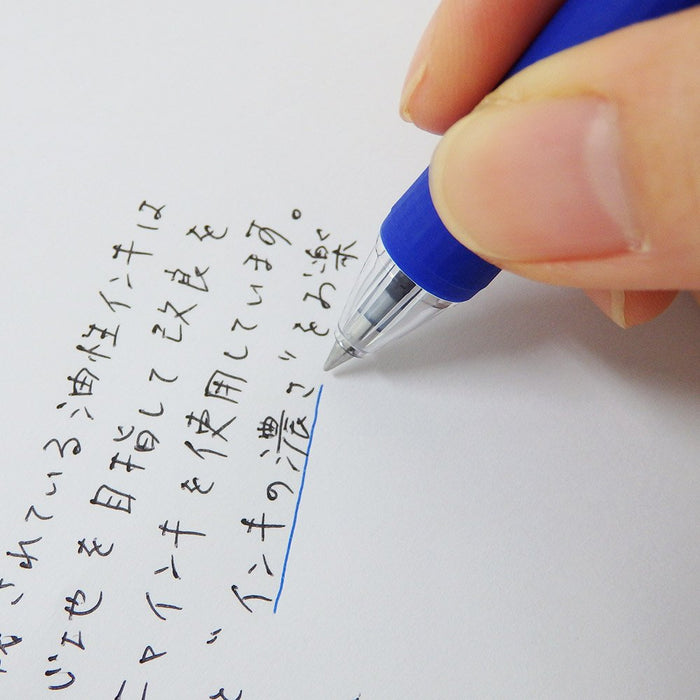 されている油性インキは
を目指して改良を
インキを使用しています。
"インキの濃さ"をお楽